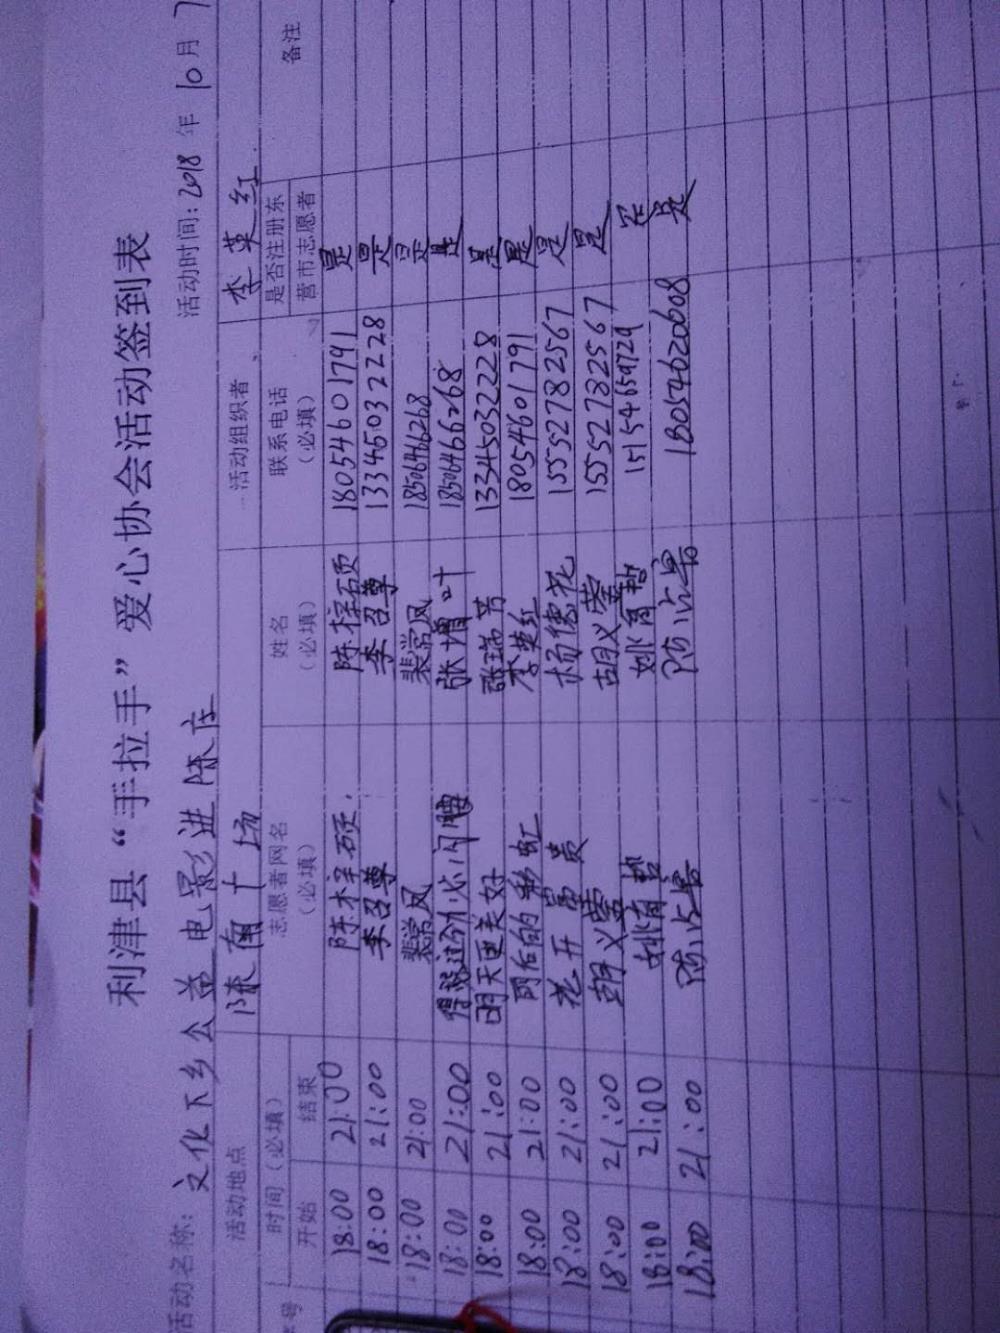 利津县“手拉手”爱心协会活动签到表
活动名称: 文化下乡公益电影进陈庄 活动时间: 2018 年 10 月 7
活动地点 陈南广场 活动组织者 李英红
序号 时间(必填) 志愿者网名(必填) 姓名(必填) 联系电话(必填) 是否注册东营市志愿者 备注
开始 结束
18:00 21:00 陈梓硕 陈梓硕 18054601791 是
18:00 21:00 李召尊 李召尊 13345032228 是
18:00 21:00 裴常凤 裴常凤 18506466268 是
18:00 21:00 得瑟过分小心闪腰 张增叶 18506466268 是
18:00 21:00 明天更美好 张瑞芳 13345032228 是
18:00 21:00 雨后的彩虹 李英红 18054601791 是
18:00 21:00 花开富贵 杨德花 15552782567 是
18:00 21:00 胡义荣 胡义荣 15552782567 是
18:00 21:00 姚商哲 姚商哲 15154659729 是
18:00 21:00 陈占景 陈占景 18054020608 是